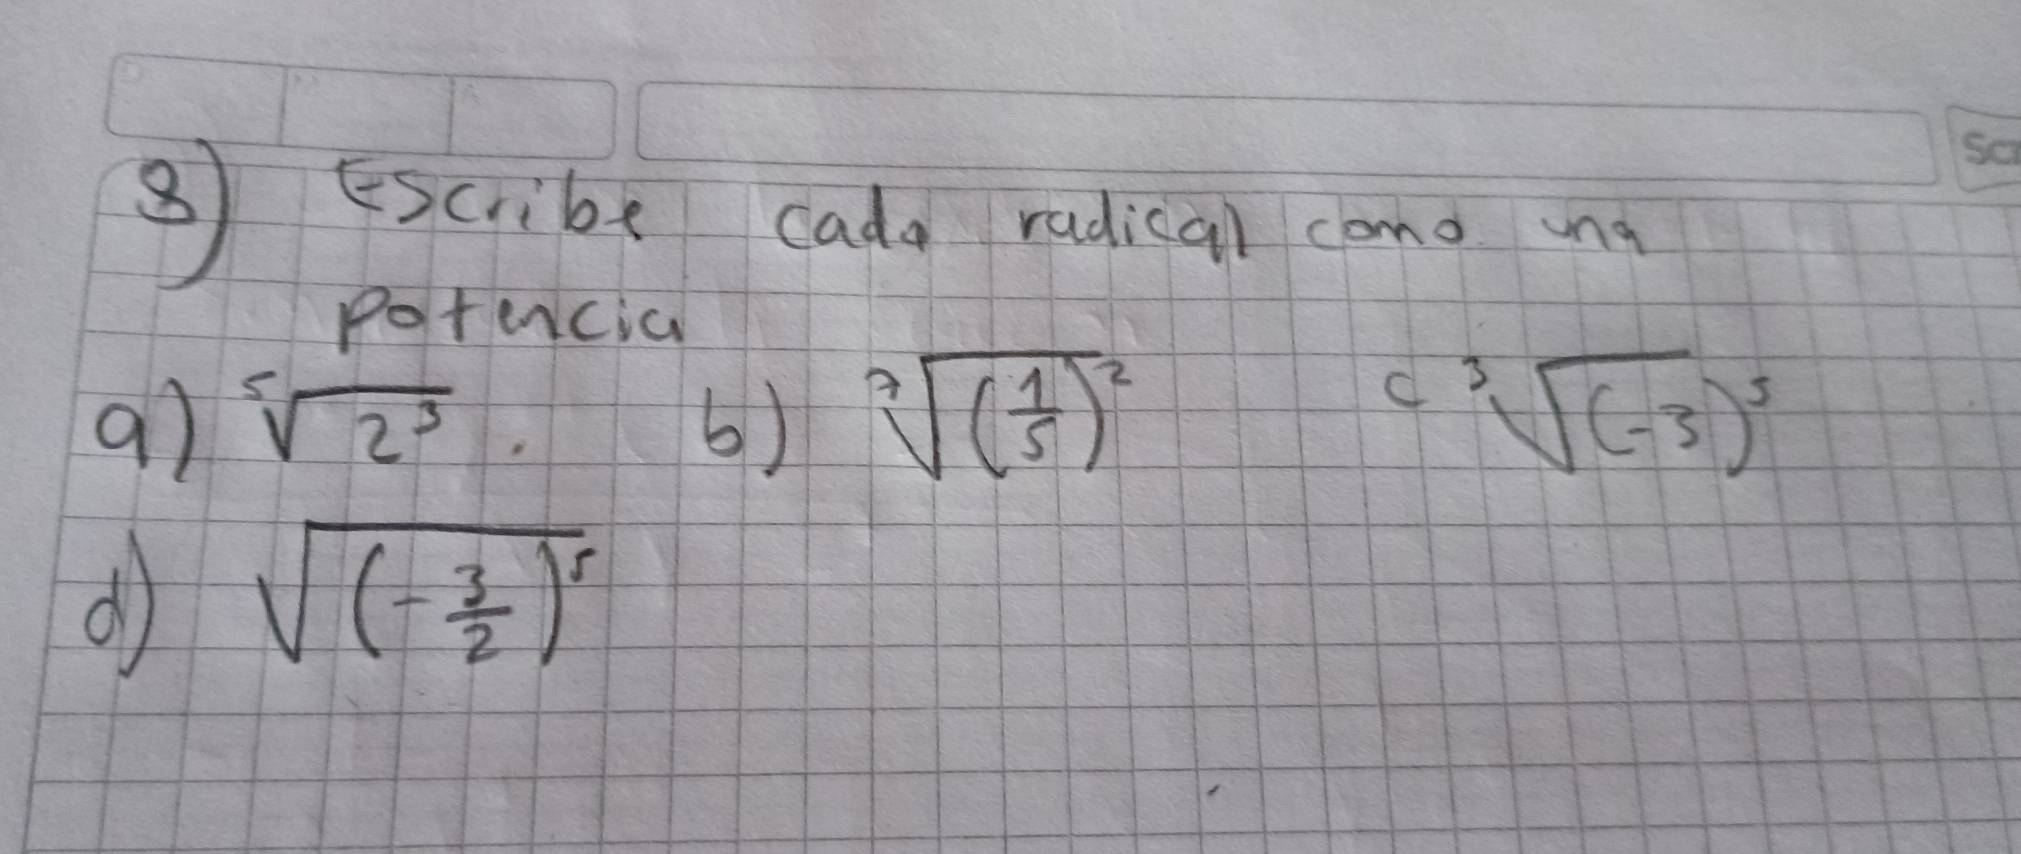 3) Escribe cada radical como una
potencia
a) ⁵√2³ . b) ⁷√(1/5)² c ³√(-3)⁵
d) √(-3/2)⁵